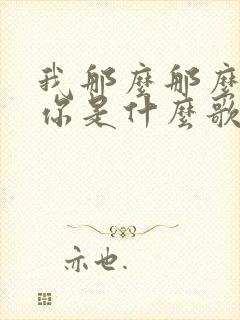 我那麼那麼
你是什麼歌
亦也.